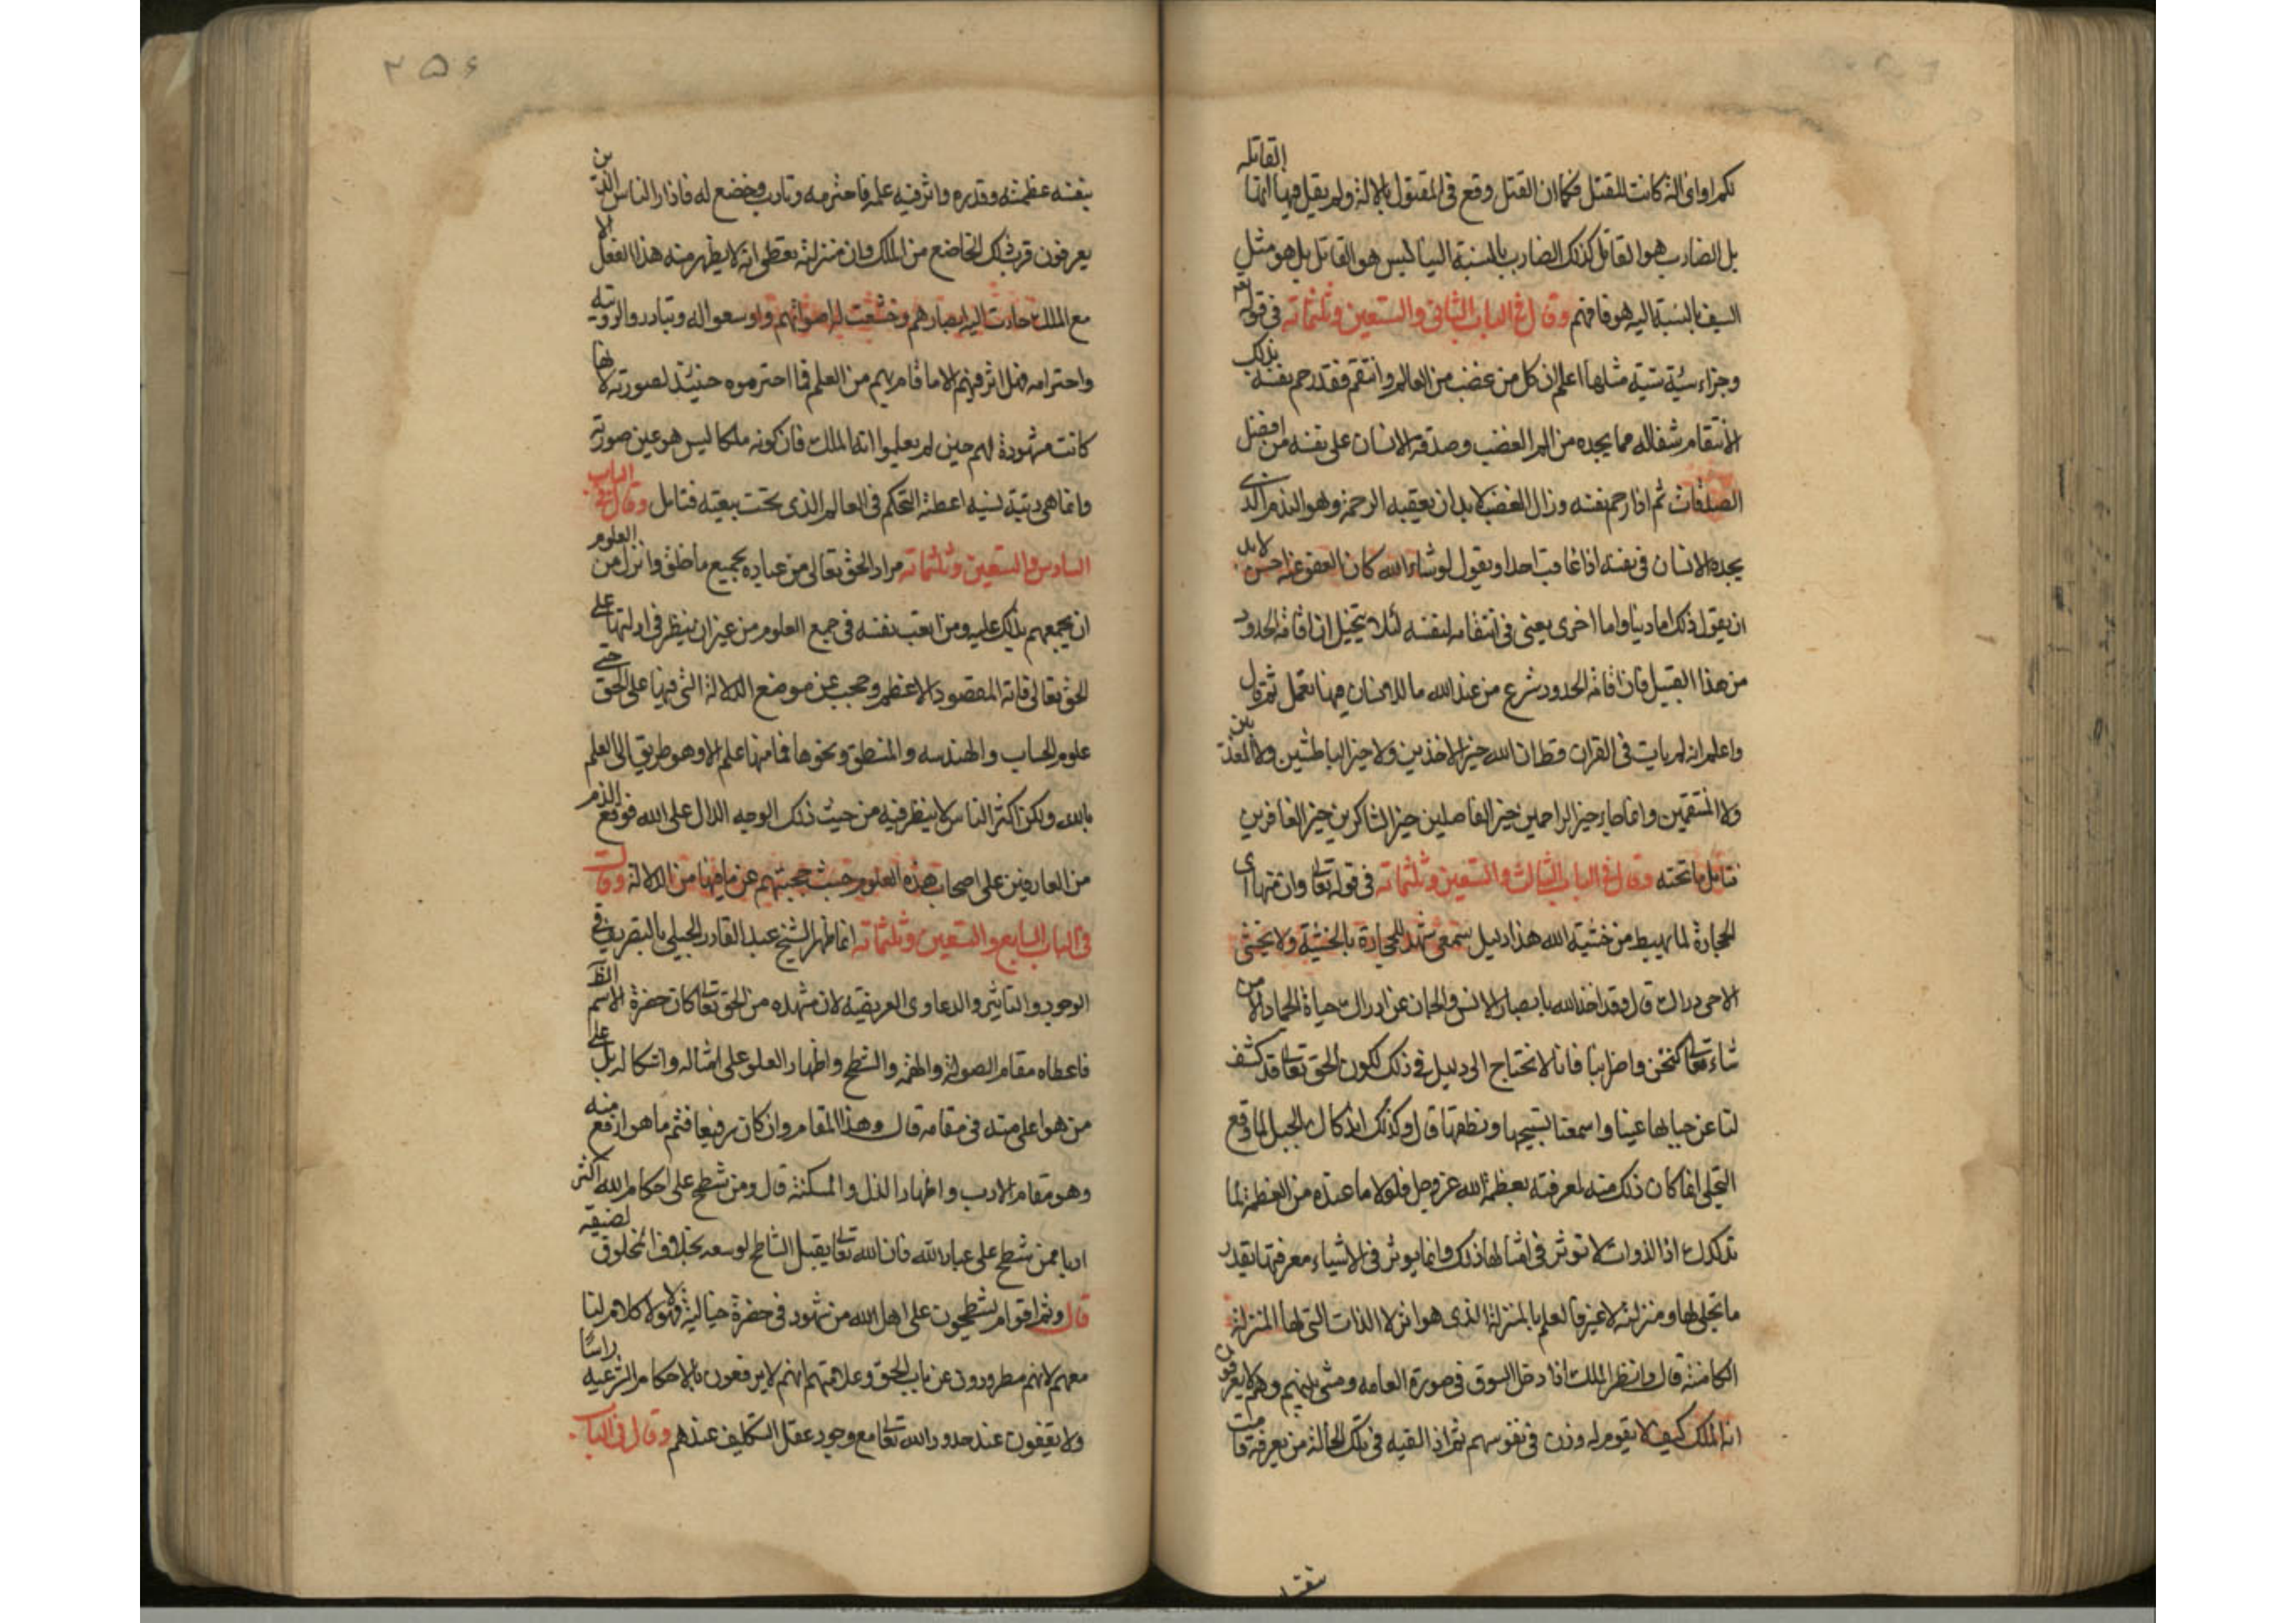 لكم او انى الة كانت للقتل فكما ان القتل وقع فى المقتول بالالة ولم يقل فيها انها القاتله
بل الضارب هو القاتل كذلك الضارب بالنسبة الينا ليس هو القاتل بل هو مثل
السيف بالنسبة اليه هو فافهم وقال فى الباب الثانى والتسعين وثلثمائه فى قوله تعالى
وجزاء سيئة سيئة مثلها اعلم ان كل من غضب من العالم وانتقم فقد رحم نفسه بذلك
الانتقام شفاله مما يجده من الم الغضب وصدقة الانسان على نفسه من افضل
الصدقات ثم اذا رحم نفسه وزال الغضب لابد ان يعقبه الرحمة وهو الندم الذى
يجده الانسان فى نفسه اذا عاقب احدا ويقول لو شاء الله كان العفو عنه احسن لابد
ان يقول ذلك اما دنيا واما اخرى يعنى فى انتقامه لنفسه لئلا يتخيل ان اقامة الحدود
من هذا القبيل فان اقامة الحدود شرع من عند الله ما للانسان فيها تعمل ثم قال
واعلم انه لم يات فى القران قط ان الله خير الاخذين ولا خير الباطشين ولا المعذبين
ولا المنتقمين وانما جاء خير الراحمين خير الفاصلين خير الشاكرين خير الغافرين
فتامل ما تحته وقال فى الباب الثالث والتسعين وثلثمائه فى قوله تعالى وان منها اى
الحجارة لما يهبط من خشية الله هذا دليل سمعى شهد للحجارة بالخشية ولا يخشى
الا حى دراك قال وقد اخذ الله بابصار الانس والجان عن ادراك حياة الجماد الا من
شاء تعالى كنحن واضرابنا فانا لا نحتاج الى دليل فى ذلك لكون الحق تعالى قد كشف
لنا عن حياتها عينا واسمعنا تسبيحها ونطقها قال وكذلك اندكاك الجبل لما وقع
التجلى انما كان ذلك منه لمعرفته بعظمة الله عز وجل فلولا ما عنده من العظمة لما
تدكدك اذ الذوات لا توثر فى امثالها ذلك وانما يوثر فى الاشياء معرفتها بقدر
ما تجلى لها ومنزلته لا غير فالعلم بالمنزلة الذى هو اثر لا الذات التى لها المنزلة
الكامنة قال وانظر الملك اذا دخل السوق فى صورة العامه ومشى بينهم وهم لا يعرفون
انه الملك كيف لا يقوم له وزن فى نفوسهم ثم اذا لقيه فى تلك الحالة من يعرفه قامت
٢٥٤
بنفسه عظمته وقدره واثر فيه علمه فاحترمه وتادب وخضع له فاذا راى الناس الذين
يعرفون قرب ذلك الخاضع من الملك وان منزلته تعطى انه لا يظهر منه هذا الفعل الا
مع الملك حارت اليه ابصارهم وخشعت له اصواتهم واوسعوا له وتبادروا لرويته
واحترامه فهل اثر فيهم الا ما قام بهم من العلم فما احترموه حينئذ لصورته لانها
كانت مشهودة لهم حين لم يعلموا انه الملك فان كونه ملكا ليس هو عين صورته
وانما هى رتبة نسبية اعطته التحكم فى العالم الذى تحت بيعته فتامل وقال فى الباب
السادس والتسعين وثلثمائه مراد الحق تعالى من عباده بجميع ما خلق وانزل من العلوم
ان يجمعهم بذلك عليه ومن اتعب نفسه فى جمع العلوم من غير ان ينظر فى ادلتها على
الحق تعالى فاته المقصود الاعظم وحجب عن موضع الدلالة التى فيها على الحق حتى
علوم الحساب والهندسه والمنطق ونحوها فما منها علم الا وهو طريق الى العلم
بالله ولكن اكثر الناس لا ينظر فيه من حيث ذلك الوجه الدال على الله فوقع الذم
من العارفين على اصحاب هذه العلوم حيث حجبتهم عن ما فيها من الدلالة وقال
فى الباب السابع والتسعين وثلثمائه انما ظهر الشيخ عبد القادر الجيلى بالتصريف فى
الوجود والتاثير والدعاوى العريضه لان مشهده من الحق تعالى كان حضرة الاسم الظاهر
فاعطاه مقام الصولة والهمة والشطح واظهار العلو على امثاله واشكاله بل على
من هو اعلى منه فى مقامه قال وهذا المقام وان كان رفيعا فثم ما هو ارفع منه
وهو مقام الادب واظهار الذل والمسكنة قال ومن شطح على احكام الله اكثر
ادبا ممن شطح على عباد الله فان الله تعالى يقبل الشاطح لوسعه بخلاف المخلوق لضيقه
قال وثم اقوام يشطحون على اهل الله من شهود فى حضرة خيالية فهولا لا كلام لنا
معهم لانهم مطرودون عن باب الحق وعلامتهم انهم لا يرفعون بالاحكام الشرعيه راسا
ولا يقفون عند حدود الله تعالى مع وجود عقل التكليف عندهم وقال فى الباب